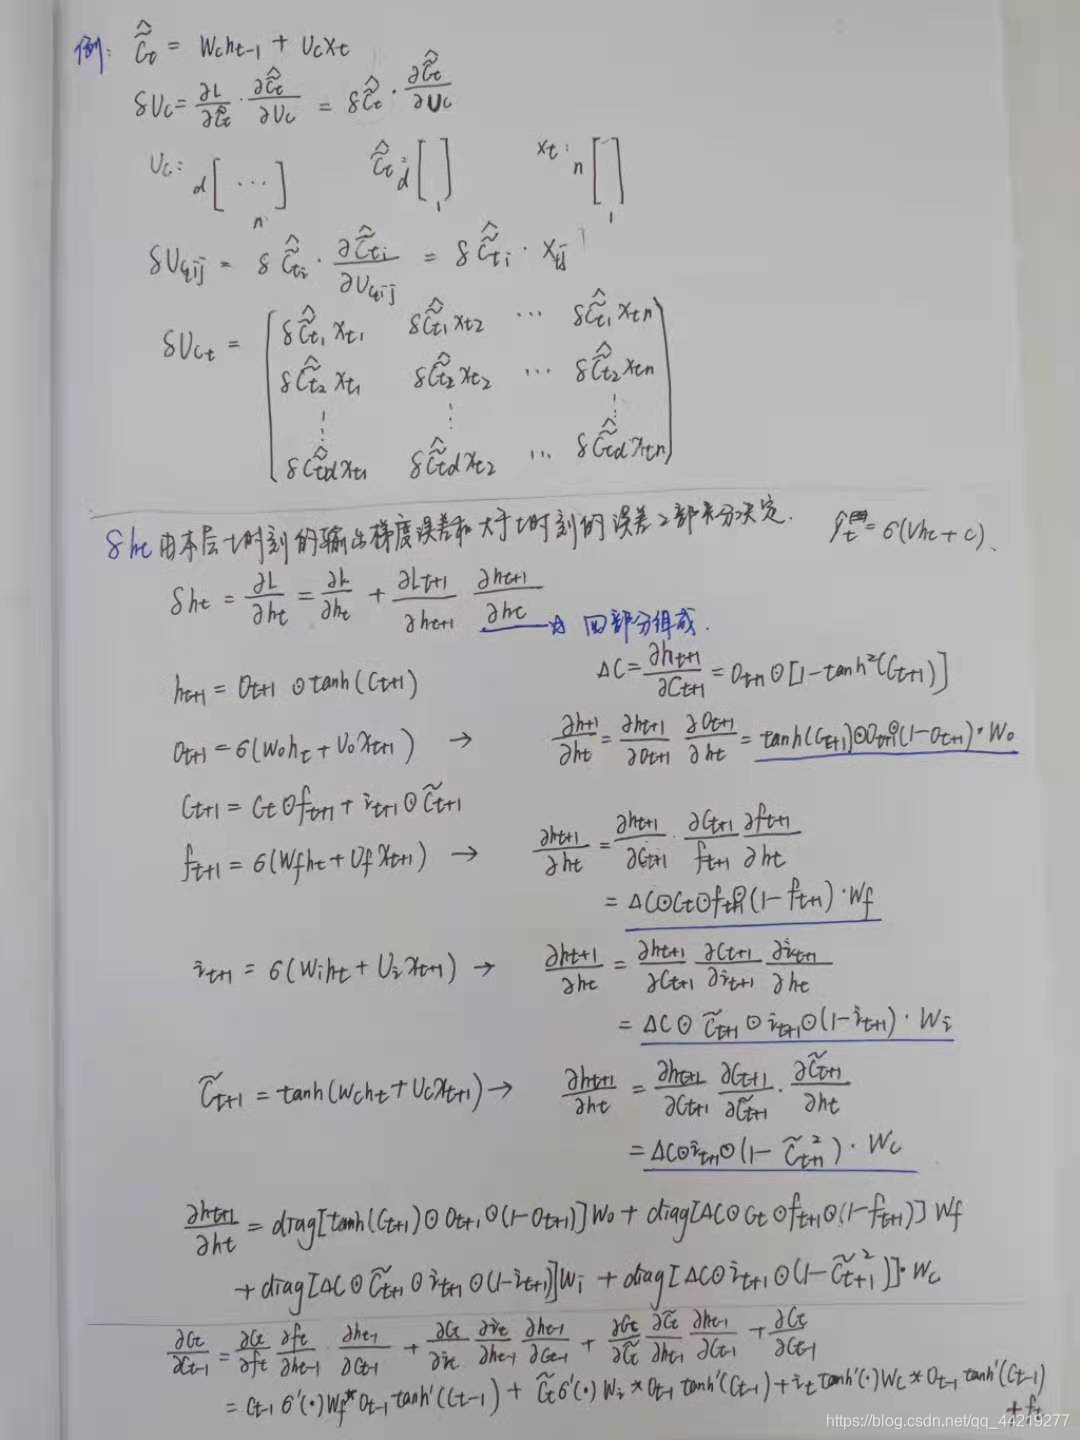 例: \hat{\tilde{C}}_t = W_c h_{t-1} + U_c x_t
δU_c = ∂L/∂\hat{\tilde{C}}_t · ∂\hat{\tilde{C}}_t/∂U_c = δ\hat{\tilde{C}}_t · ∂\hat{\tilde{C}}_t/∂U_c
U_c: d[ ... ] n   \hat{\tilde{C}}_t: d[ ] 1   x_t: n[ ] 1
δU_{c,ij} = δ\hat{\tilde{C}}_{ti} · ∂\hat{\tilde{C}}_{ti}/∂U_{c,ij} = δ\hat{\tilde{C}}_{ti} · x_{tj}
δU_{ct} = [ δ\hat{\tilde{C}}_{t1} x_{t1}   δ\hat{\tilde{C}}_{t1} x_{t2}   ...   δ\hat{\tilde{C}}_{t1} x_{tn}
δ\hat{\tilde{C}}_{t2} x_{t1}   δ\hat{\tilde{C}}_{t2} x_{t2}   ...   δ\hat{\tilde{C}}_{t2} x_{tn}
⋮   ⋮   ⋮
δ\hat{\tilde{C}}_{td} x_{t1}   δ\hat{\tilde{C}}_{td} x_{t2}   ...   δ\hat{\tilde{C}}_{td} x_{tn} ]
δh_t 由本层t时刻的输出梯度误差和大于t时刻的误差2部分决定. ŷ_t = σ(Vh_t + c).
δh_t = ∂L/∂h_t = ∂L/∂h_t + ∂L_{t+1}/∂h_{t+1} ∂h_{t+1}/∂h_t → 由 四部分组成.
h_{t+1} = O_{t+1} ⊙ tanh(C_{t+1})   ΔC = ∂h_{t+1}/∂C_{t+1} = O_{t+1} ⊙ [1 - tanh²(C_{t+1})]
O_{t+1} = σ(W_o h_t + U_o x_{t+1}) → ∂h_{t+1}/∂h_t = ∂h_{t+1}/∂O_{t+1} ∂O_{t+1}/∂h_t = tanh(C_{t+1}) ⊙ O_{t+1} ⊙ (1 - O_{t+1}) · W_o
C_{t+1} = C_t ⊙ f_{t+1} + i_{t+1} ⊙ \tilde{C}_{t+1}
f_{t+1} = σ(W_f h_t + U_f x_{t+1}) → ∂h_{t+1}/∂h_t = ∂h_{t+1}/∂C_{t+1} · ∂C_{t+1}/f_{t+1} ∂f_{t+1}/∂h_t
= ΔC ⊙ C_t ⊙ f_{t+1} ⊙ (1 - f_{t+1}) · W_f
i_{t+1} = σ(W_i h_t + U_i x_{t+1}) → ∂h_{t+1}/∂h_t = ∂h_{t+1}/∂C_{t+1} ∂C_{t+1}/∂i_{t+1} ∂i_{t+1}/∂h_t
= ΔC ⊙ \tilde{C}_{t+1} ⊙ i_{t+1} ⊙ (1 - i_{t+1}) · W_i
\tilde{C}_{t+1} = tanh(W_c h_t + U_c x_{t+1}) → ∂h_{t+1}/∂h_t = ∂h_{t+1}/∂C_{t+1} ∂C_{t+1}/∂\tilde{C}_{t+1} · ∂\tilde{C}_{t+1}/∂h_t
= ΔC ⊙ i_{t+1} ⊙ (1 - \tilde{C}_{t+1}²) · W_c
∂h_{t+1}/∂h_t = diag[tanh(C_{t+1}) ⊙ O_{t+1} ⊙ (1 - O_{t+1})] W_o + diag[ΔC ⊙ C_t ⊙ f_{t+1} ⊙ (1 - f_{t+1})] W_f
+ diag[ΔC ⊙ \tilde{C}_{t+1} ⊙ i_{t+1} ⊙ (1 - i_{t+1})] W_i + diag[ΔC ⊙ i_{t+1} ⊙ (1 - \tilde{C}_{t+1}²)] · W_c
∂C_t/∂C_{t-1} = ∂C_t/∂f_t ∂f_t/∂h_{t-1} · ∂h_{t-1}/∂C_{t-1} + ∂C_t/∂i_t ∂i_t/∂h_{t-1} ∂h_{t-1}/∂C_{t-1} + ∂C_t/∂\tilde{C}_t ∂\tilde{C}_t/∂h_{t-1} ∂h_{t-1}/∂C_{t-1} + ∂C_t/∂C_{t-1}
= C_{t-1} σ'(·) W_f * O_{t-1} tanh'(C_{t-1}) + \tilde{C}_t σ'(·) W_i * O_{t-1} tanh'(C_{t-1}) + i_t tanh'(·) W_c * O_{t-1} tanh'(C_{t-1})
+ f_t
https://blog.csdn.net/qq_44219277